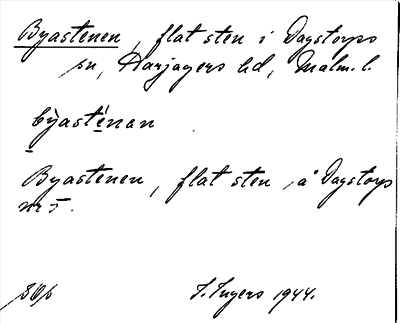 Byastenen, flat sten i Dagstorps
sn, Harjagers hd, Malm. l.
by̆àsténan
Byastenen, flat sten, å Dagstorp
nr 5.
I. Ingers 1944.